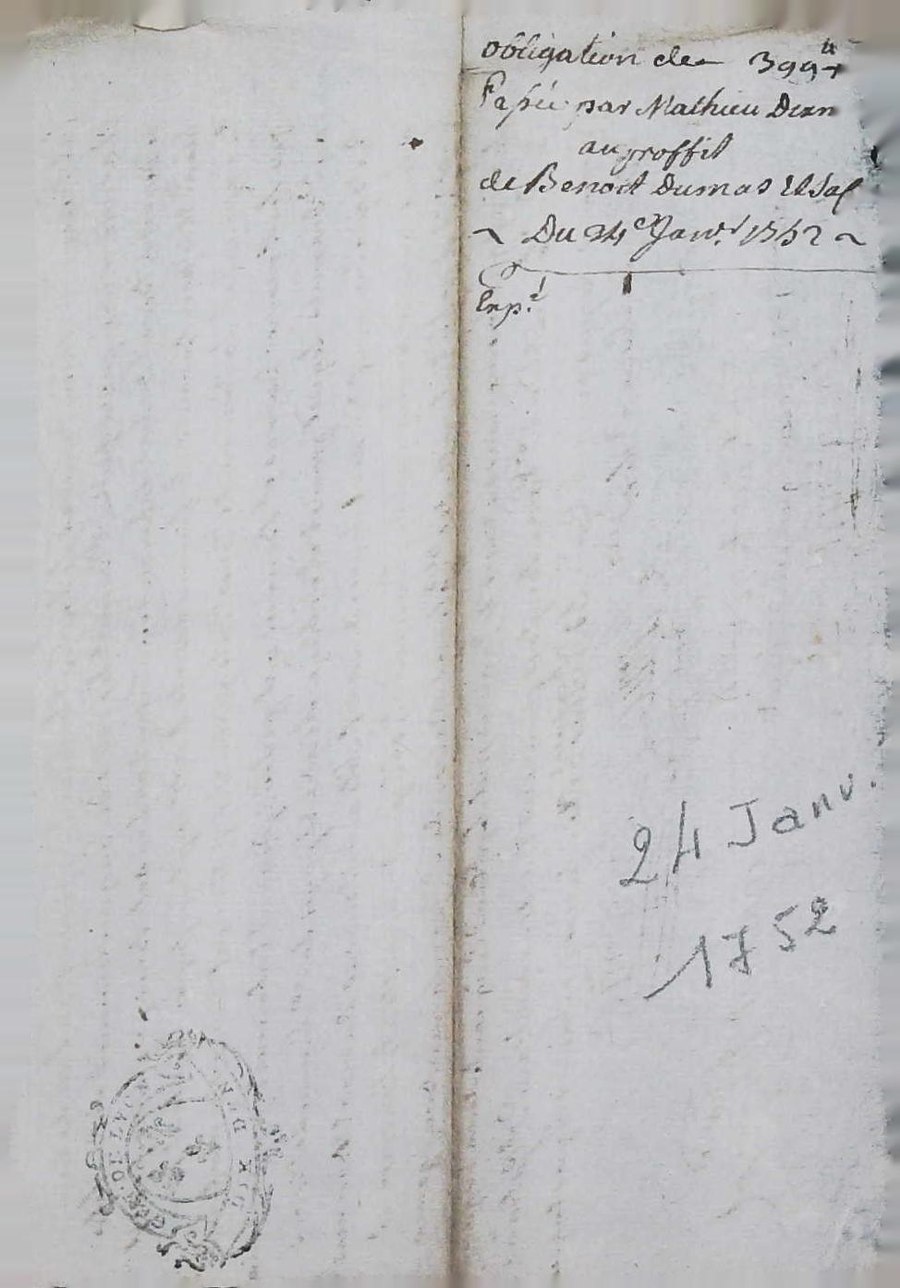 obligation de 399tt
Passée par Mathieu
au proffit
de Benoit Dumas Et Sa f
~ Du 24e Janv.r 1752 ~
Exp.é
24 Janv.
1752